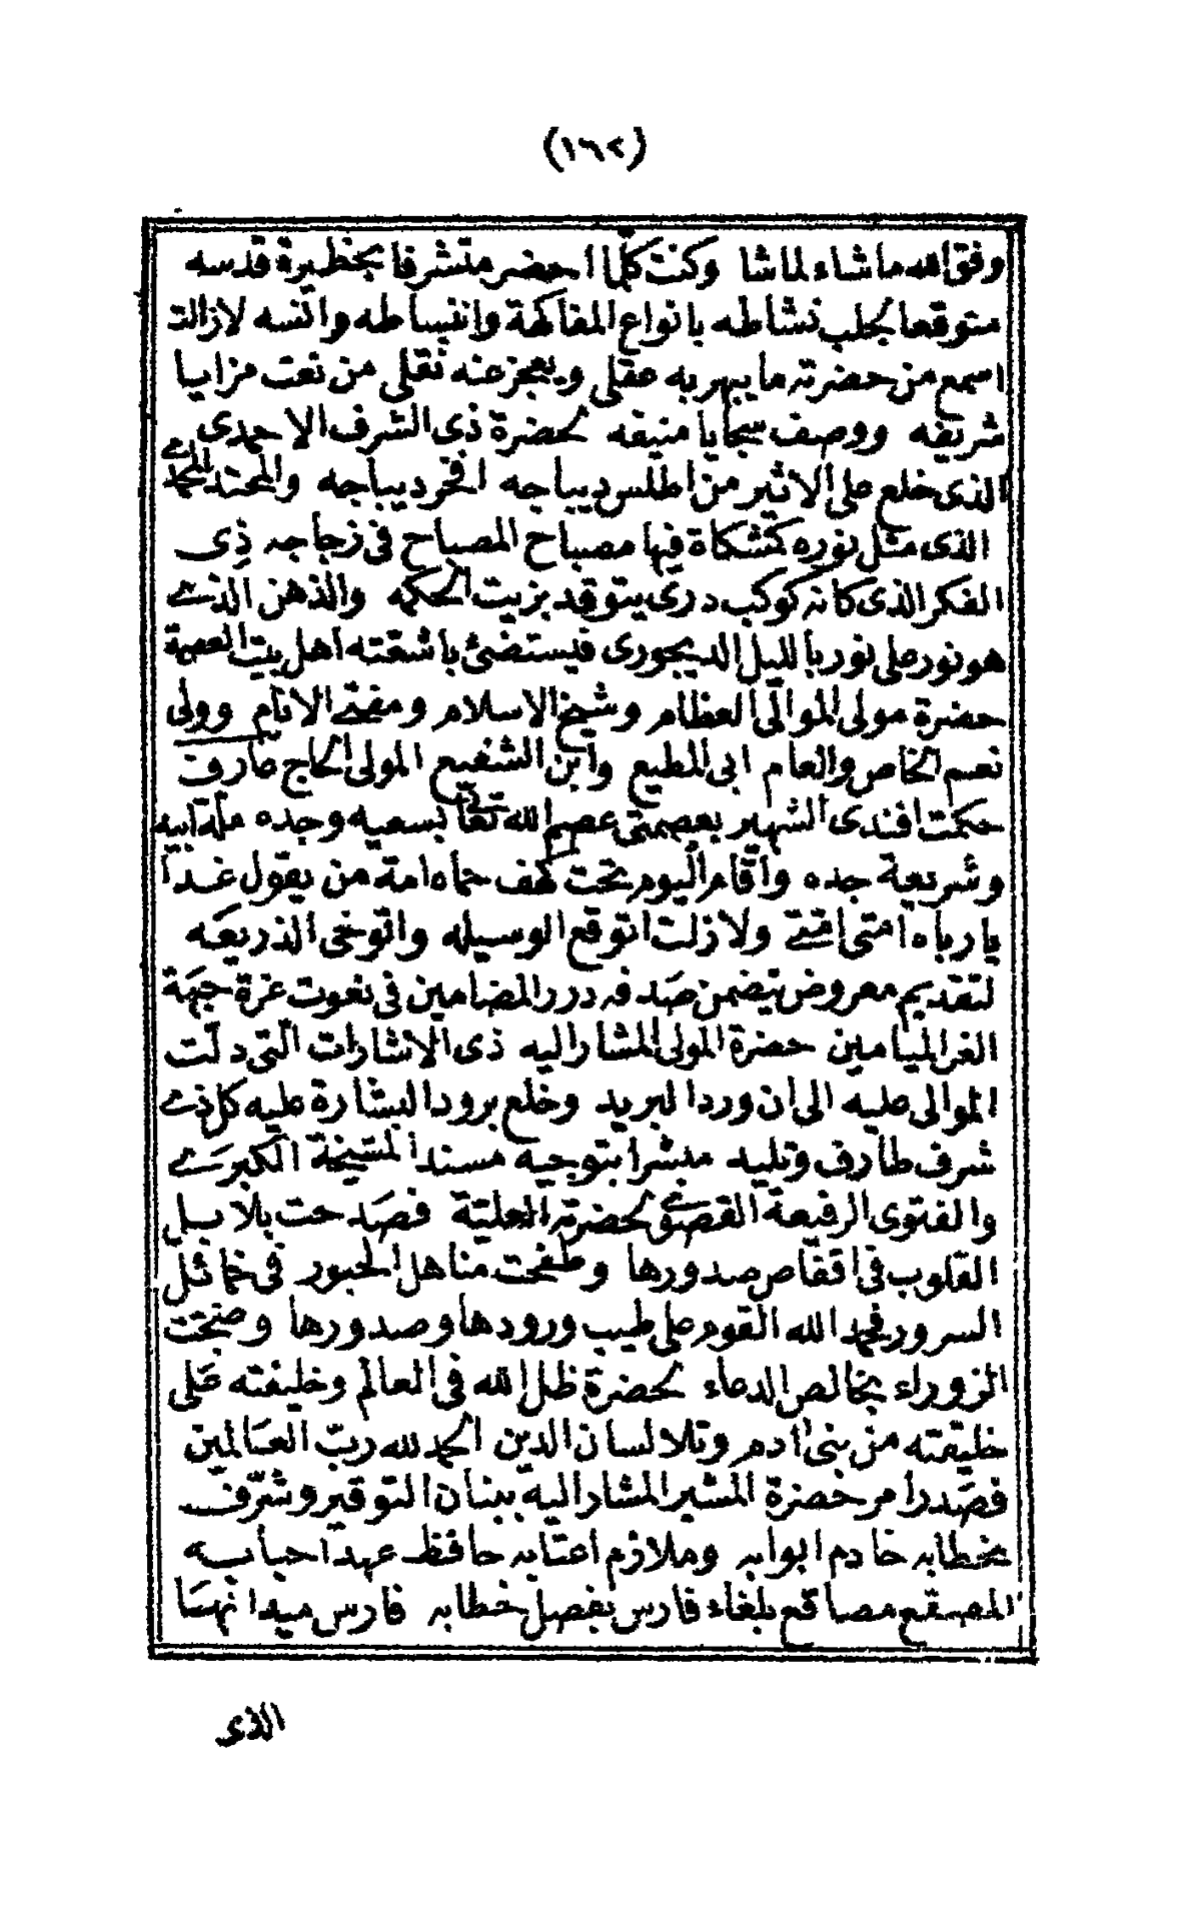 (١٦٢)
وفق الله ما شاء لما شا وكنت كلما احضر متشرفا بحظيرة قدسه
متوقعا لجلب نشاطه بانواع المفاكهة وانبساطه وانسه لازالت
اسمع من حضرته ما يبهر به عقلي ويعجز عنه نقلي من نعت مزايا
شريفه ووصف سجايا منيفه لحضرة ذى الشرف الاحمدى
الذى خلع على الاثير من اطلس ديباجه افخر ديباجه والمحتد المحمدي
الذى مثل نوره كمشكاة فيها مصباح المصباح فى زجاجه ذى
الفكر الذى كانه كوكب درى يتوقد بزيت الحكمه والذهن الذي
هو نور على نور بالليل الديجورى فيستضئ باشعته اهل بيت العصمة
حضرة مولى الموالى العظام وشيخ الاسلام ومفتي الانام وولى
نعم الخاص والعام ابى المطيع وابن الشفيع المولى الحاج عارف
حكمت افندى الشهير بعصمتى عصم الله تعالى بسعيه وجده ملة ابيه
وشريعة جده واقام اليوم تحت كهف حماه امة من يقول غدا
يارباه امتى امتي ولازلت اتوقع الوسيله واتوخى الذريعه
لتقديم معروض يتضمن صدفه درر المضامين فى نعوت غرة جبهة
الغر الميامين حضرة المولى المشار اليه ذى الاشارات التى دلت
الموالى عليه الى ان ورد البريد وخلع برود البشارة عليه كل ذي
شرف طارف وتليد مبشرا بتوجيه مسند المشيخة الكبرى
والفتوى الرفيعة القصوى لحضرته العلية فصدحت بلابل
القلوب فى اقفاص صدورها وطفحت مناهل الحبور فى خمائل
السرور فحمد الله القوم على طيب ورودها وصدورها وضجت
الزوراء بخالص الدعاء لحضرة ظل الله فى العالم وخليفته على
خليقته من بنى ادم وتلا لسان الدين الحمد لله رب العالمين
فصدر امر حضرة المشير المشار اليه ببنان التوقير وشرف
بخطابه خادم ابوابه وملازم اعتابه حافظ عهد احبابه
المصقع مصاقع بلغاء فارس بفصل خطابه فارس ميدانها
الذى